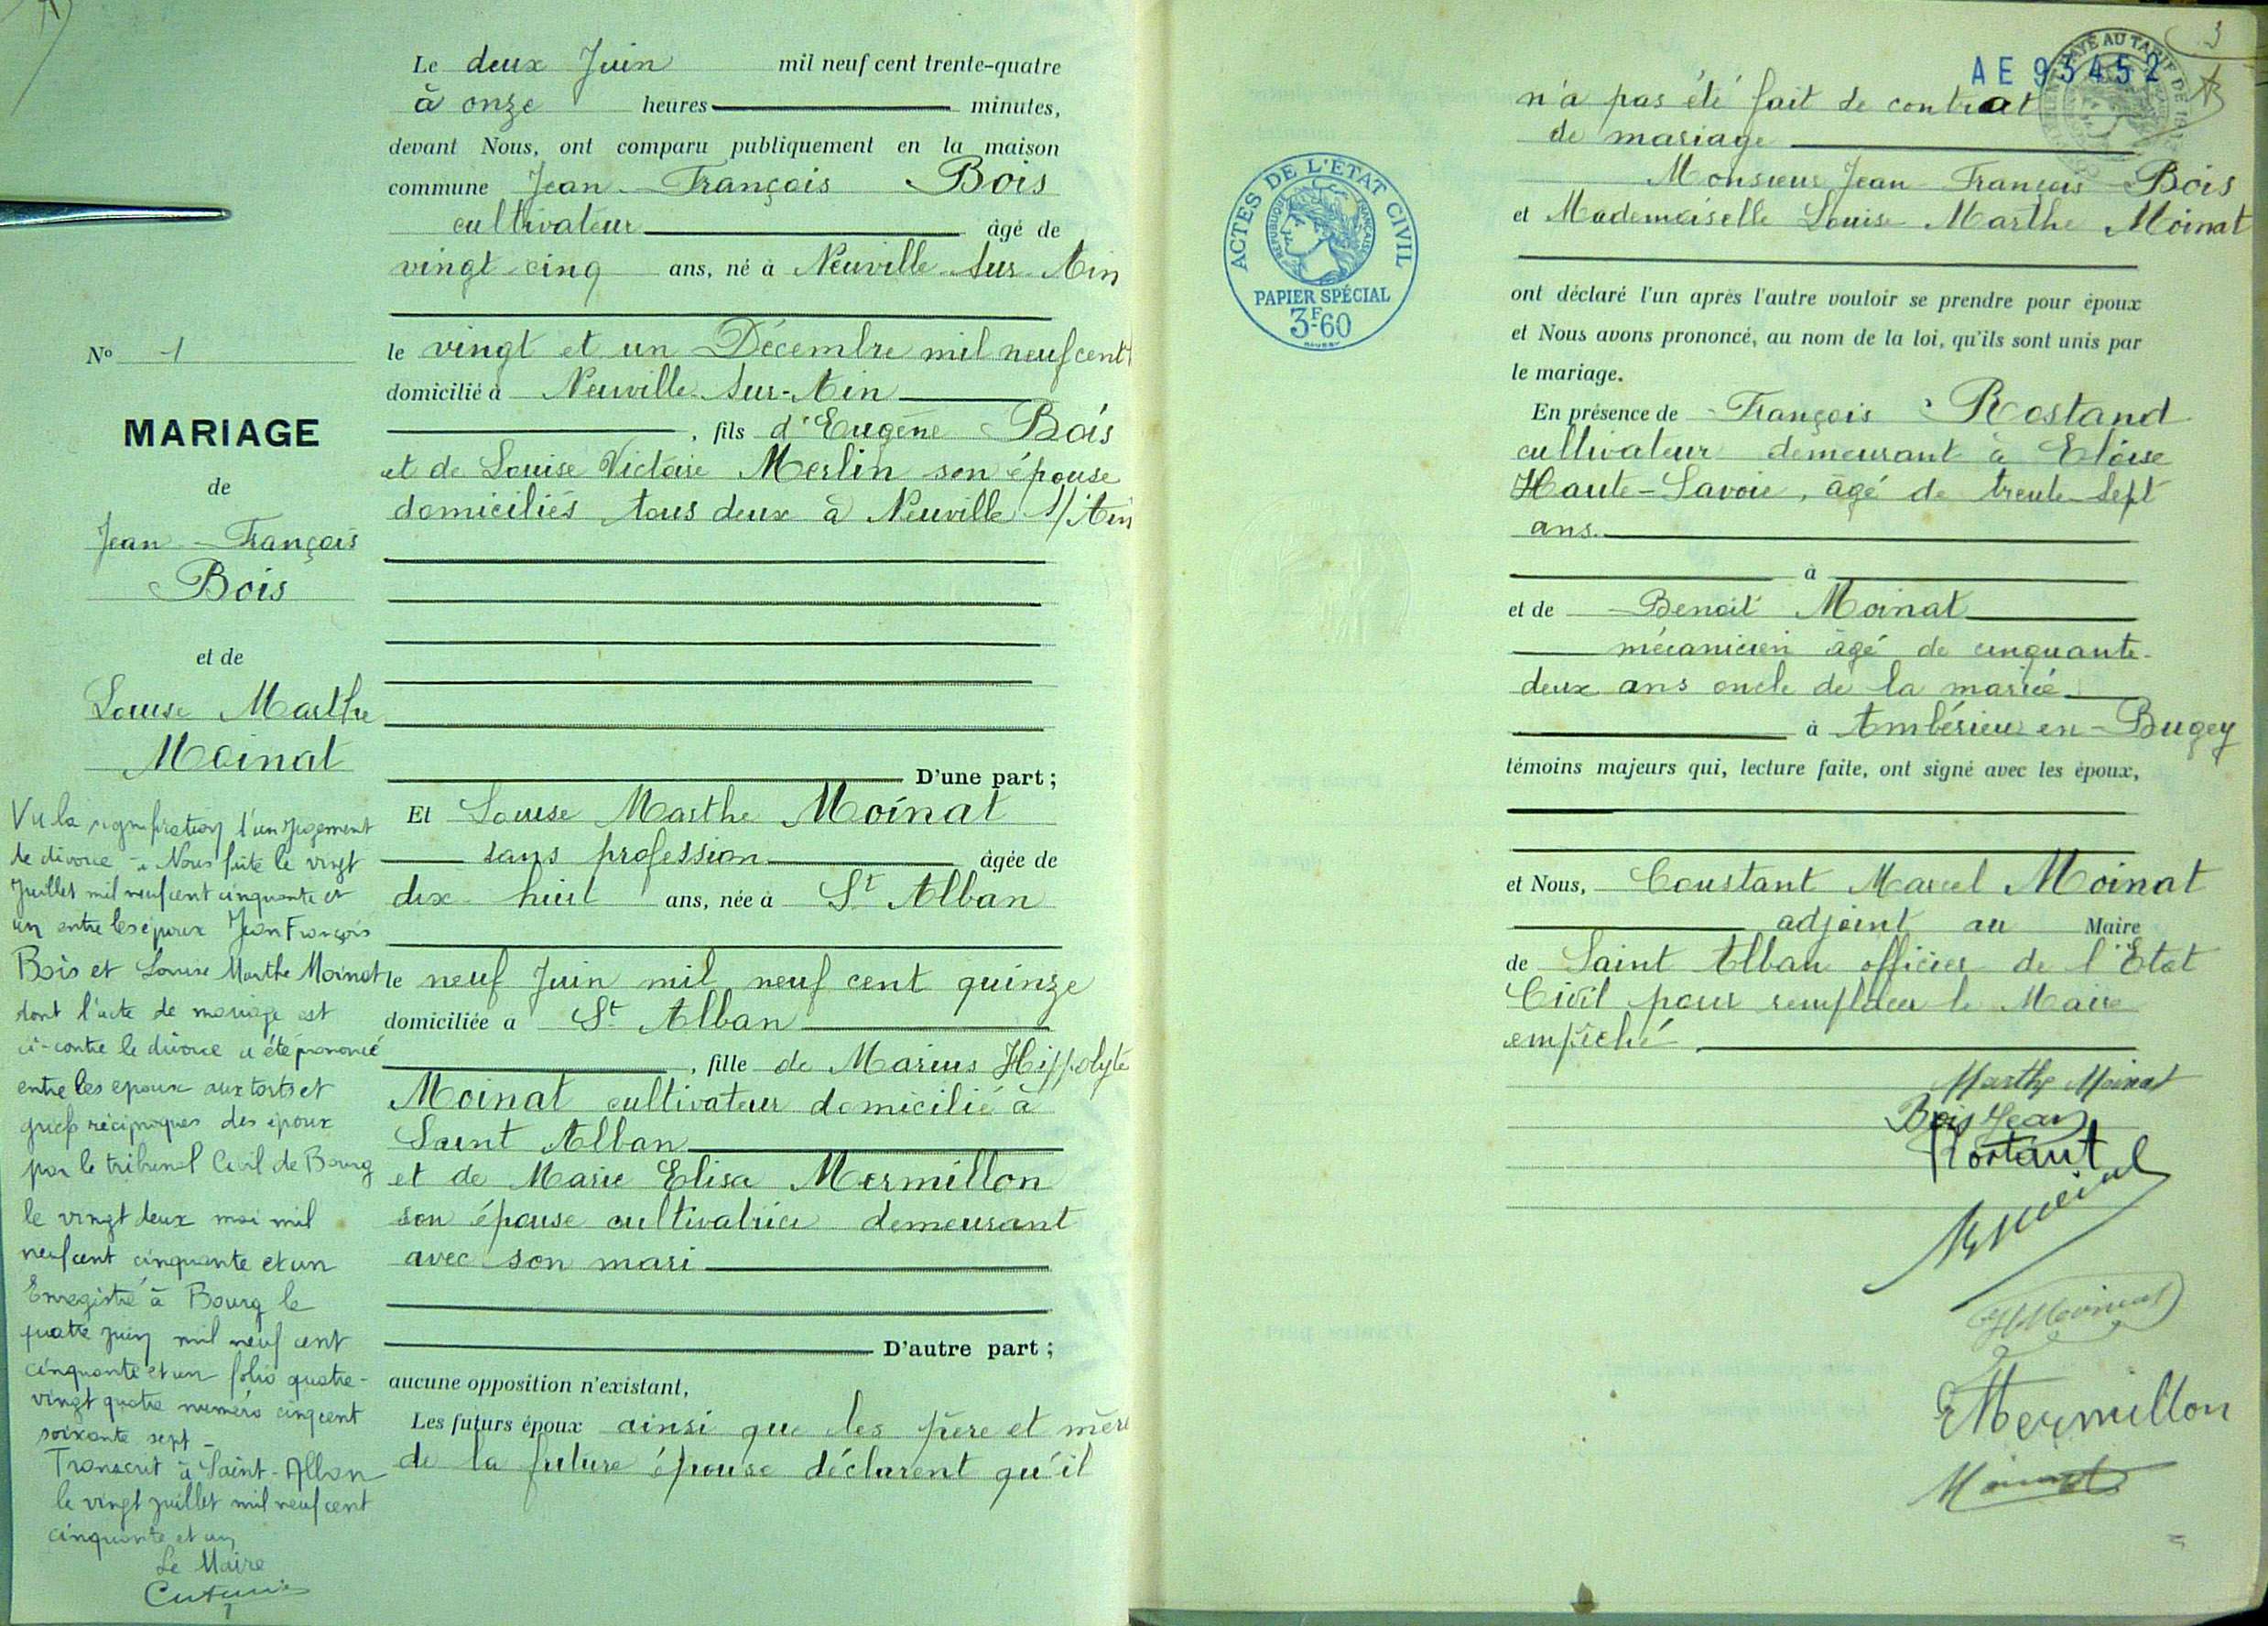 Le deux Juin mil neuf cent trente-quatre
à onze heures minutes,
devant Nous, ont comparu publiquement en la maison
commune Jean-François Bois
cultivateur âgé de
vingt-cinq ans, né à Neuville-sur-Ain
le vingt et un Décembre mil neuf cent
domicilié à Neuville-sur-Ain
, fils d'Eugène Bois
et de Louise Victoire Merlin son épouse
domiciliés tous deux à Neuville s/Ain
D'une part ;
Et Louise Marthe Moinat
sans profession âgée de
dix-huit ans, née à St Alban
le neuf Juin mil neuf cent quinze
domiciliée à St Alban
, fille de Marius Hippolyte
Moinat cultivateur domicilié à
Saint Alban
et de Marie Elisa Mermillon
son épouse cultivatrice demeurant
avec son mari
D'autre part ;
aucune opposition n'existant,
Les futurs époux ainsi que les père et mère
de la future épouse déclarent qu'il
No 1
MARIAGE
de
Jean-François
Bois
et de
Louise Marthe
Moinat
Vu la signification d'un jugement
de divorce à Nous faite le vingt
Juillet mil neuf cent cinquante et
un entre les époux Jean François
Bois et Louise Marthe Moinat
dont l'acte de mariage est
ci-contre le divorce a été prononcé
entre les epoux aux torts et
griefs réciproques des époux
par le tribunal Civil de Bourg
le vingt deux mai mil
neuf cent cinquante et un
Enregistré à Bourg le
quatre juin mil neuf cent
cinquante et un folio quatre-
vingt quatre numéro cinq cent
soixante sept -
Transcrit à Saint-Alban
le vingt juillet mil neuf cent
cinquante et un
Le Maire
3
AE 95452
n'a pas été fait de contrat
de mariage
Monsieur Jean-François Bois
et Mademoiselle Louise Marthe Moinat
ont déclaré l'un après l'autre vouloir se prendre pour époux
et Nous avons prononcé, au nom de la loi, qu'ils sont unis par
le mariage.
En présence de François Rostand
cultivateur demeurant à Eloise
Haute-Savoie, âgé de trente-sept
ans.
à
et de Benoit Moinat
mécanicien âgé de cinquante-
deux ans oncle de la mariée
à Ambérieu-en-Bugey
témoins majeurs qui, lecture faite, ont signé avec les époux,
et Nous, Constant Marcel Moinat
adjoint au Maire
de Saint Alban officier de l'Etat
Civil pour remplacer le Maire
empêché
Marthe Moinat
Bois Jean
Mermillon
Moinat
ACTES DE L'ÉTAT CIVIL
RÉPUBLIQUE FRANÇAISE
PAPIER SPÉCIAL
3F60